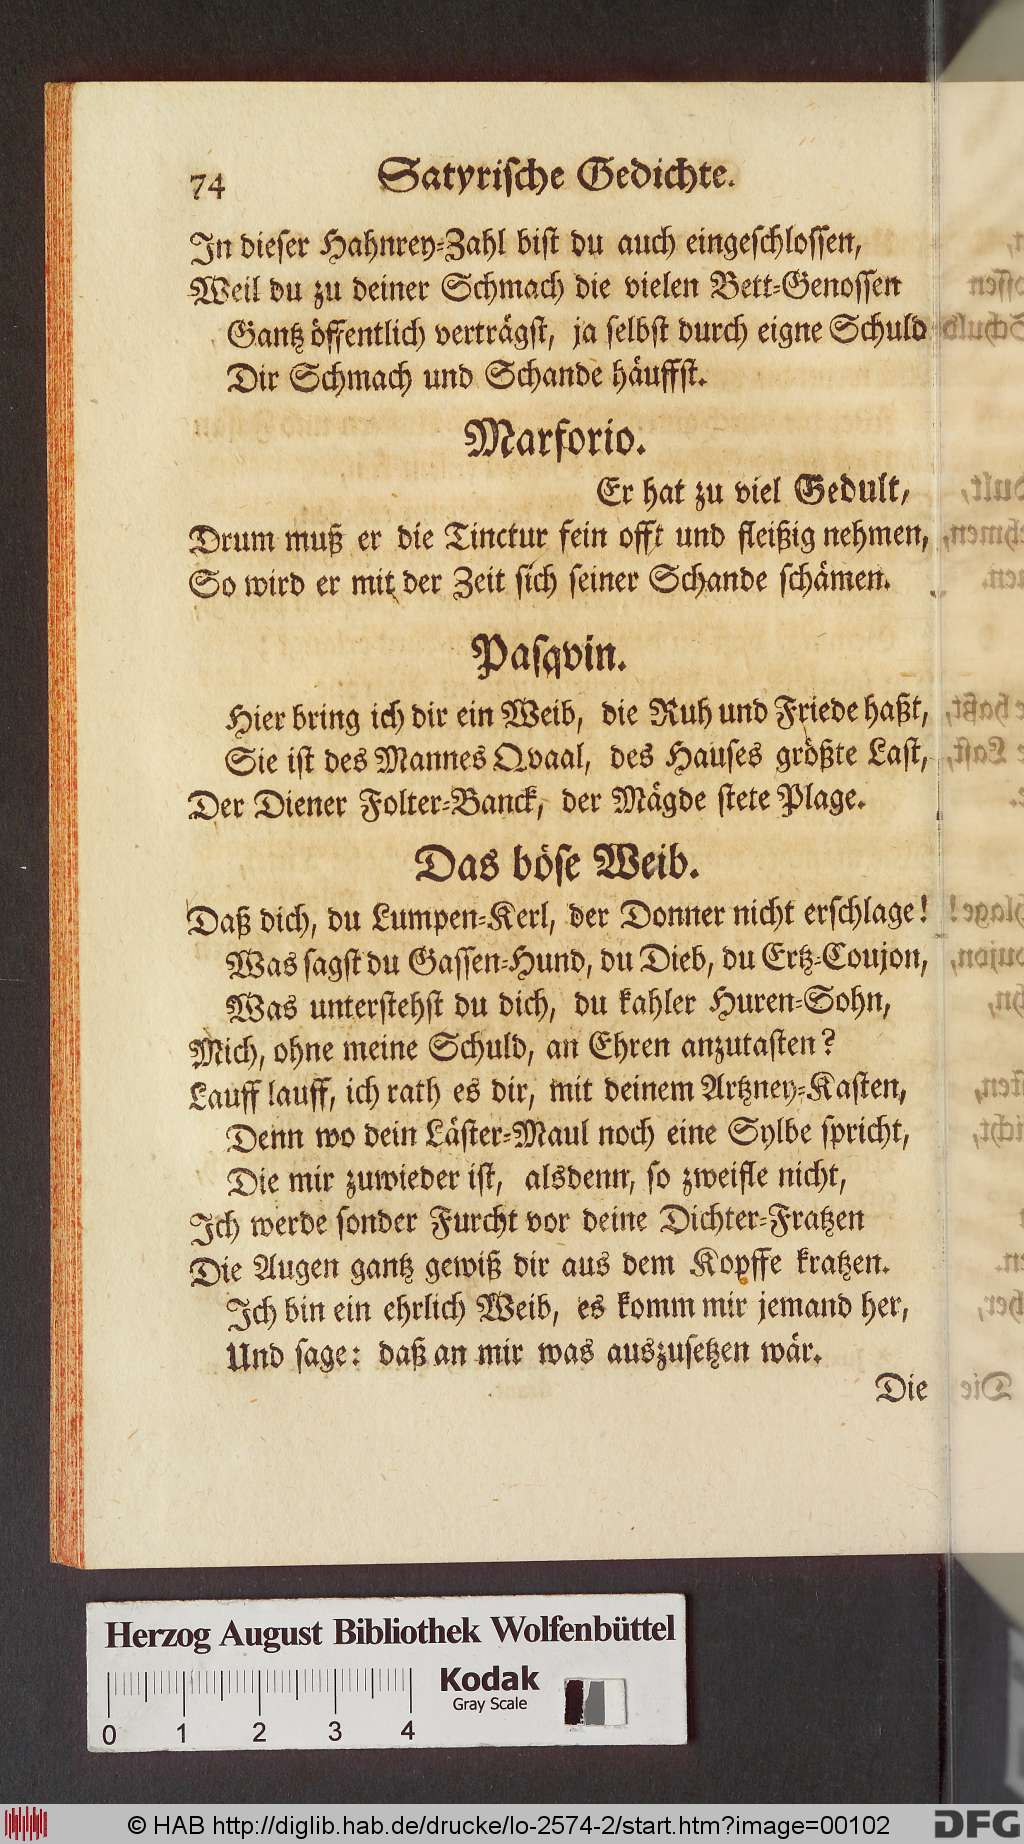 74 Satyrische Gedichte.
In dieser Hahnrey-Zahl bist du auch eingeschlossen,
Weil du zu deiner Schmach die vielen Bett-Genossen
Gantz öffentlich verträgst, ja selbst durch eigne Schuld
Dir Schmach und Schande häuffst.
Marforio.
Er hat zu viel Gedult,
Drum muß er die Tinctur fein offt und fleißig nehmen,
So wird er mit der Zeit sich seiner Schande schämen.
Pasqvin.
Hier bring ich dir ein Weib, die Ruh und Friede haßt,
Sie ist des Mannes Qvaal, des Hauses größte Last,
Der Diener Folter-Banck, der Mägde stete Plage.
Das böse Weib.
Daß dich, du Lumpen-Kerl, der Donner nicht erschlage!
Was sagst du Gassen-Hund, du Dieb, du Ertz-Coujon,
Was unterstehst du dich, du kahler Huren-Sohn,
Mich, ohne meine Schuld, an Ehren anzutasten?
Lauff lauff, ich rath es dir, mit deinem Artzney-Kasten,
Denn wo dein Läster-Maul noch eine Sylbe spricht,
Die mir zuwieder ist, alsdenn, so zweifle nicht,
Ich werde sonder Furcht vor deine Dichter-Fratzen
Die Augen gantz gewiß dir aus dem Kopffe kratzen.
Ich bin ein ehrlich Weib, es komm mir jemand her,
Und sage: daß an mir was auszusetzen wär.
Die
Herzog August Bibliothek Wolfenbüttel
Kodak
Gray Scale
0 1 2 3 4
© HAB http://diglib.hab.de/drucke/lo-2574-2/start.htm?image=00102
DFG